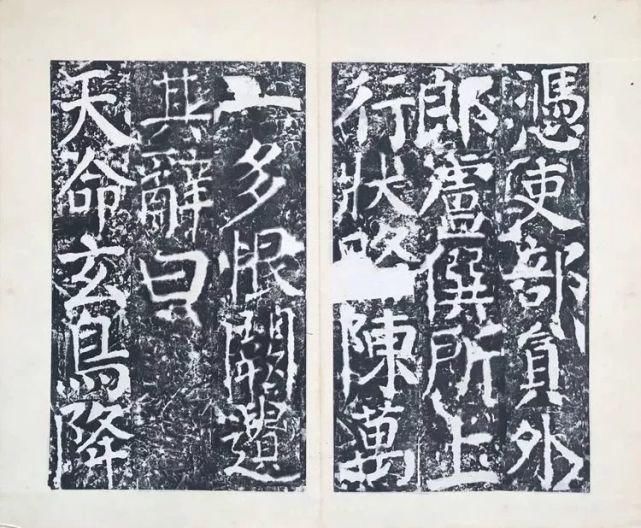 憑吏部員外
郎盧僎所上
行狀略陳萬
一多恨闕遺
其辭曰
天命玄鳥降